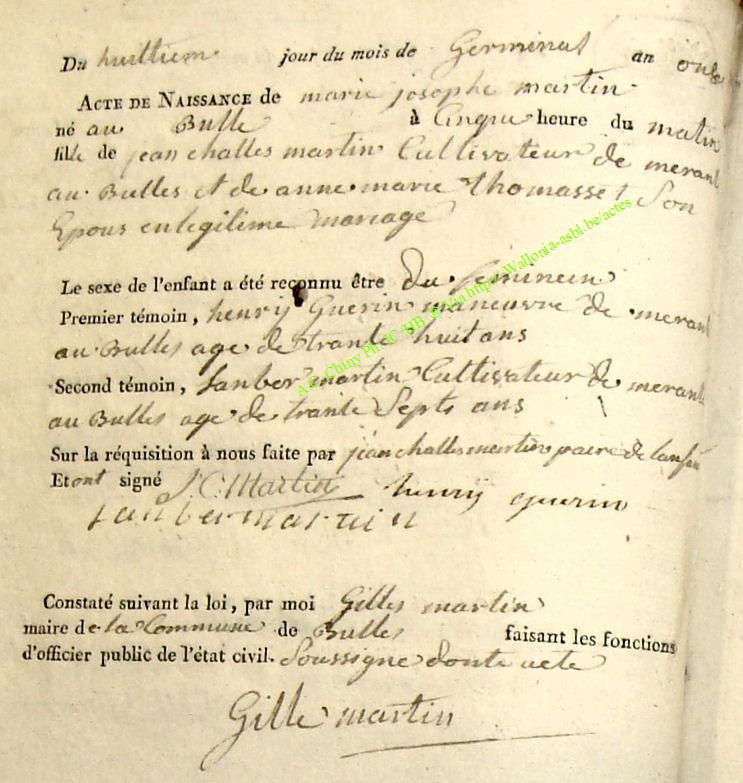 Du huittiem jour du mois de Germinal an onze
ACTE DE NAISSANCE de marie josephe martin
né au Bulle à Cinque heure du matin
fille de jean challes martin Cultivateur de merant
au Bulles et de anne marie thomasset Son
Epous en legitime mariage
Le sexe de l'enfant a été reconnu être du feminein
Premier témoin, henrij Guerin maneuvre de merant
au Bulles age de trante huit ans
Second témoin, lanber martin Cultivateur de merant
au Bulles age de trante Septs ans
Sur la réquisition à nous faite par jean challes martin paire de lanfan
Et ont signé J C Martin henrij guerin
lanber martin
Constaté suivant la loi, par moi Gilles martin
maire de la Commune de Bulles faisant les fonctions
d'officier public de l'état civil. Soussigne
Gille martin
https://wallonia-asbl.be/actes